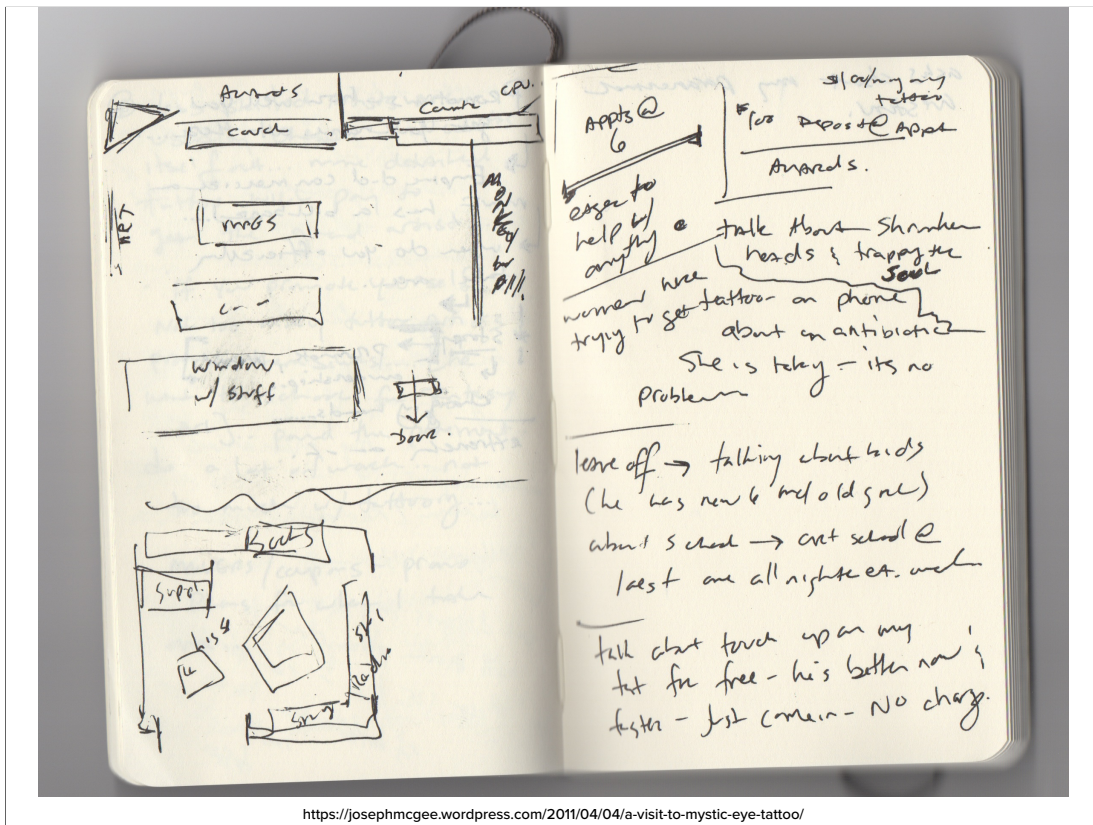 Awards
couch
Counter
CPU.
MAGS
window
w/ stuff
door.
MONKEY
Books
Suppl.
his
Radio
Appts @
6
eager to
help w/
anything
talking my
tattoo
$100 Deposit @ Appt
Awards.
talk About Shrunken
heads & trapping the
Soul
women here
trying to get tattoo - on phone
about an antibiotic
She is taking - its no
problem
leave off → talking about kids
(he has new 6 mo old girl)
about school → art school @
least one all nighter et. week
talk about touch up on my
tat for free - he's better now &
faster - Just come in - No charge.
https://josephmcgee.wordpress.com/2011/04/04/a-visit-to-mystic-eye-tattoo/